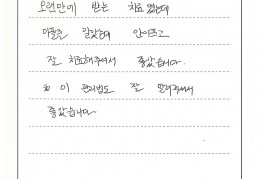 오랜만에 받는 치료 였는데
아플줄 알았는데 안아프고
잘 치료해주셔서 좋았습니다.
이 관리법도 잘 알려주셔서
좋았습니다